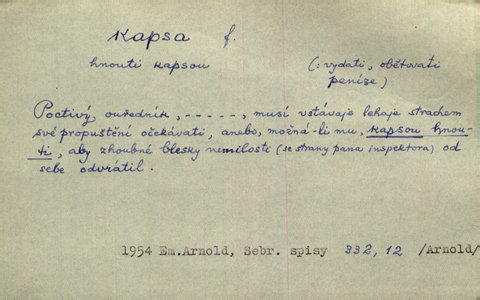 kapsa f.
hnouti kapsou (: vydati, obětovati
peníze)
Poctivý ouředník, - - - - -, musí vstávaje lehaje strachem
své propuštění očekávati, anebo, možná-li mu, kapsou hnou-
ti, aby zhoubné blesky nemilosti (se strany pana inspektora) od
sebe odvrátil.
1954 Em.Arnold, Sebr. spisy 332, 12 /Arnold/